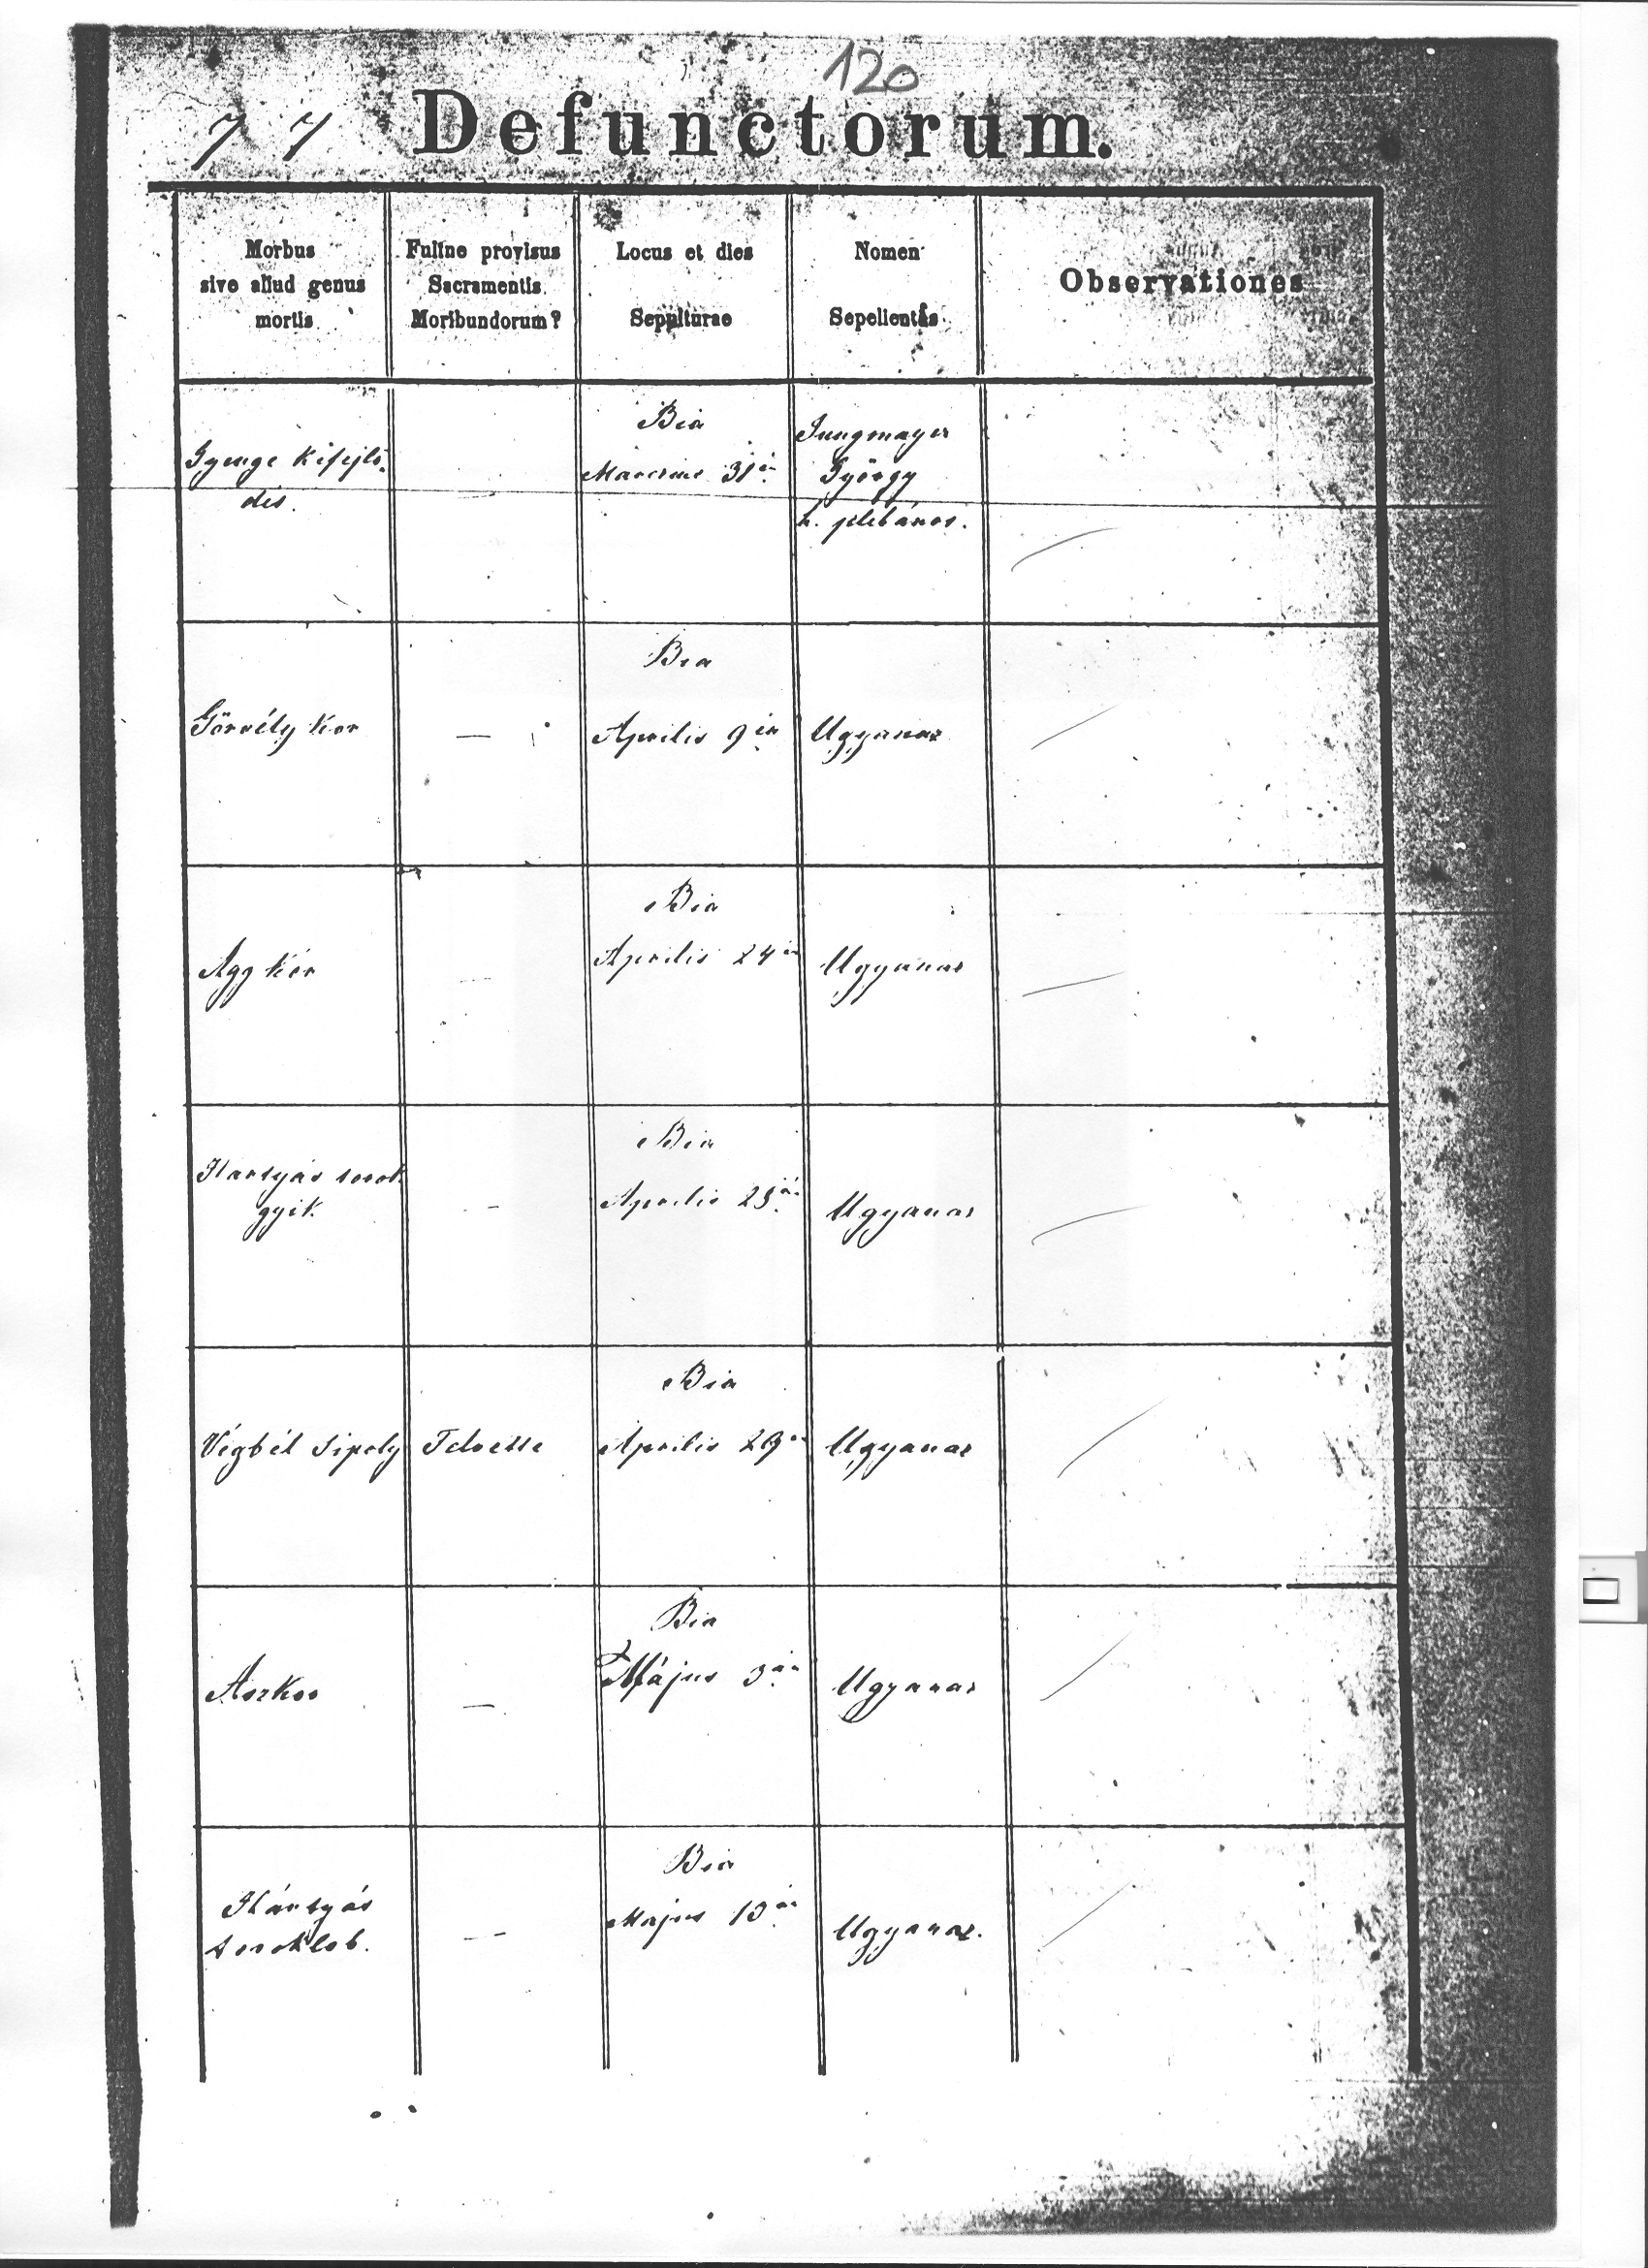 120
77 Defunctorum.
Morbus
sive aliud genus
mortis
Fuitne provisus
Sacramentis
Moribundorum?
Locus et dies
Sepulturae
Nomen
Sepelientis
Observationes
Gyenge kifejlő-
dés.
Bia
Marczius 31én
Jungmayer
György
h. plébános.
Bia
Görvély kor
—
Aprilis 9én
Ugyanaz
Bia
Agg kór
—
Aprilis 24én
Ugyanaz
Bia
Hártyás torok
gyik
—
Aprilis
Ugyanaz
Bia
Végbél sipoly
Felvette
Aprilis 29én
Ugyanaz
Bia
Aszkor
—
Május 3án
Ugyanaz
Bia
Hártyás
toroklob.
—
Május 13án
Ugyanaz.